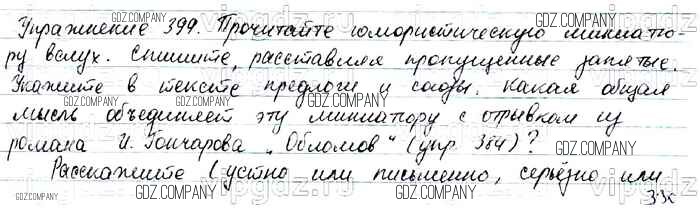 Упражнение 399. Прочитайте юмористическую миниатю-
ру вслух. Спишите, расставляя пропущенные запятые.
Укажите в тексте предлоги и союзы. Какая общая
мысль объединяет эту миниатюру с отрывком из
романа И. Гончарова „Обломов“ (упр. 384)?
Расскажите (устно или письменно, серьёзно или
GDZ.COMPANY
GDZ.COMPANY
GDZ.COMPANY
GDZ.COMPANY
GDZ.COMPANY
GDZ.COMPANY
GDZ.COMPANY
GDZ.COMPANY
GDZ.COMPANY
GDZ.COMPANY
vipgdz.ru